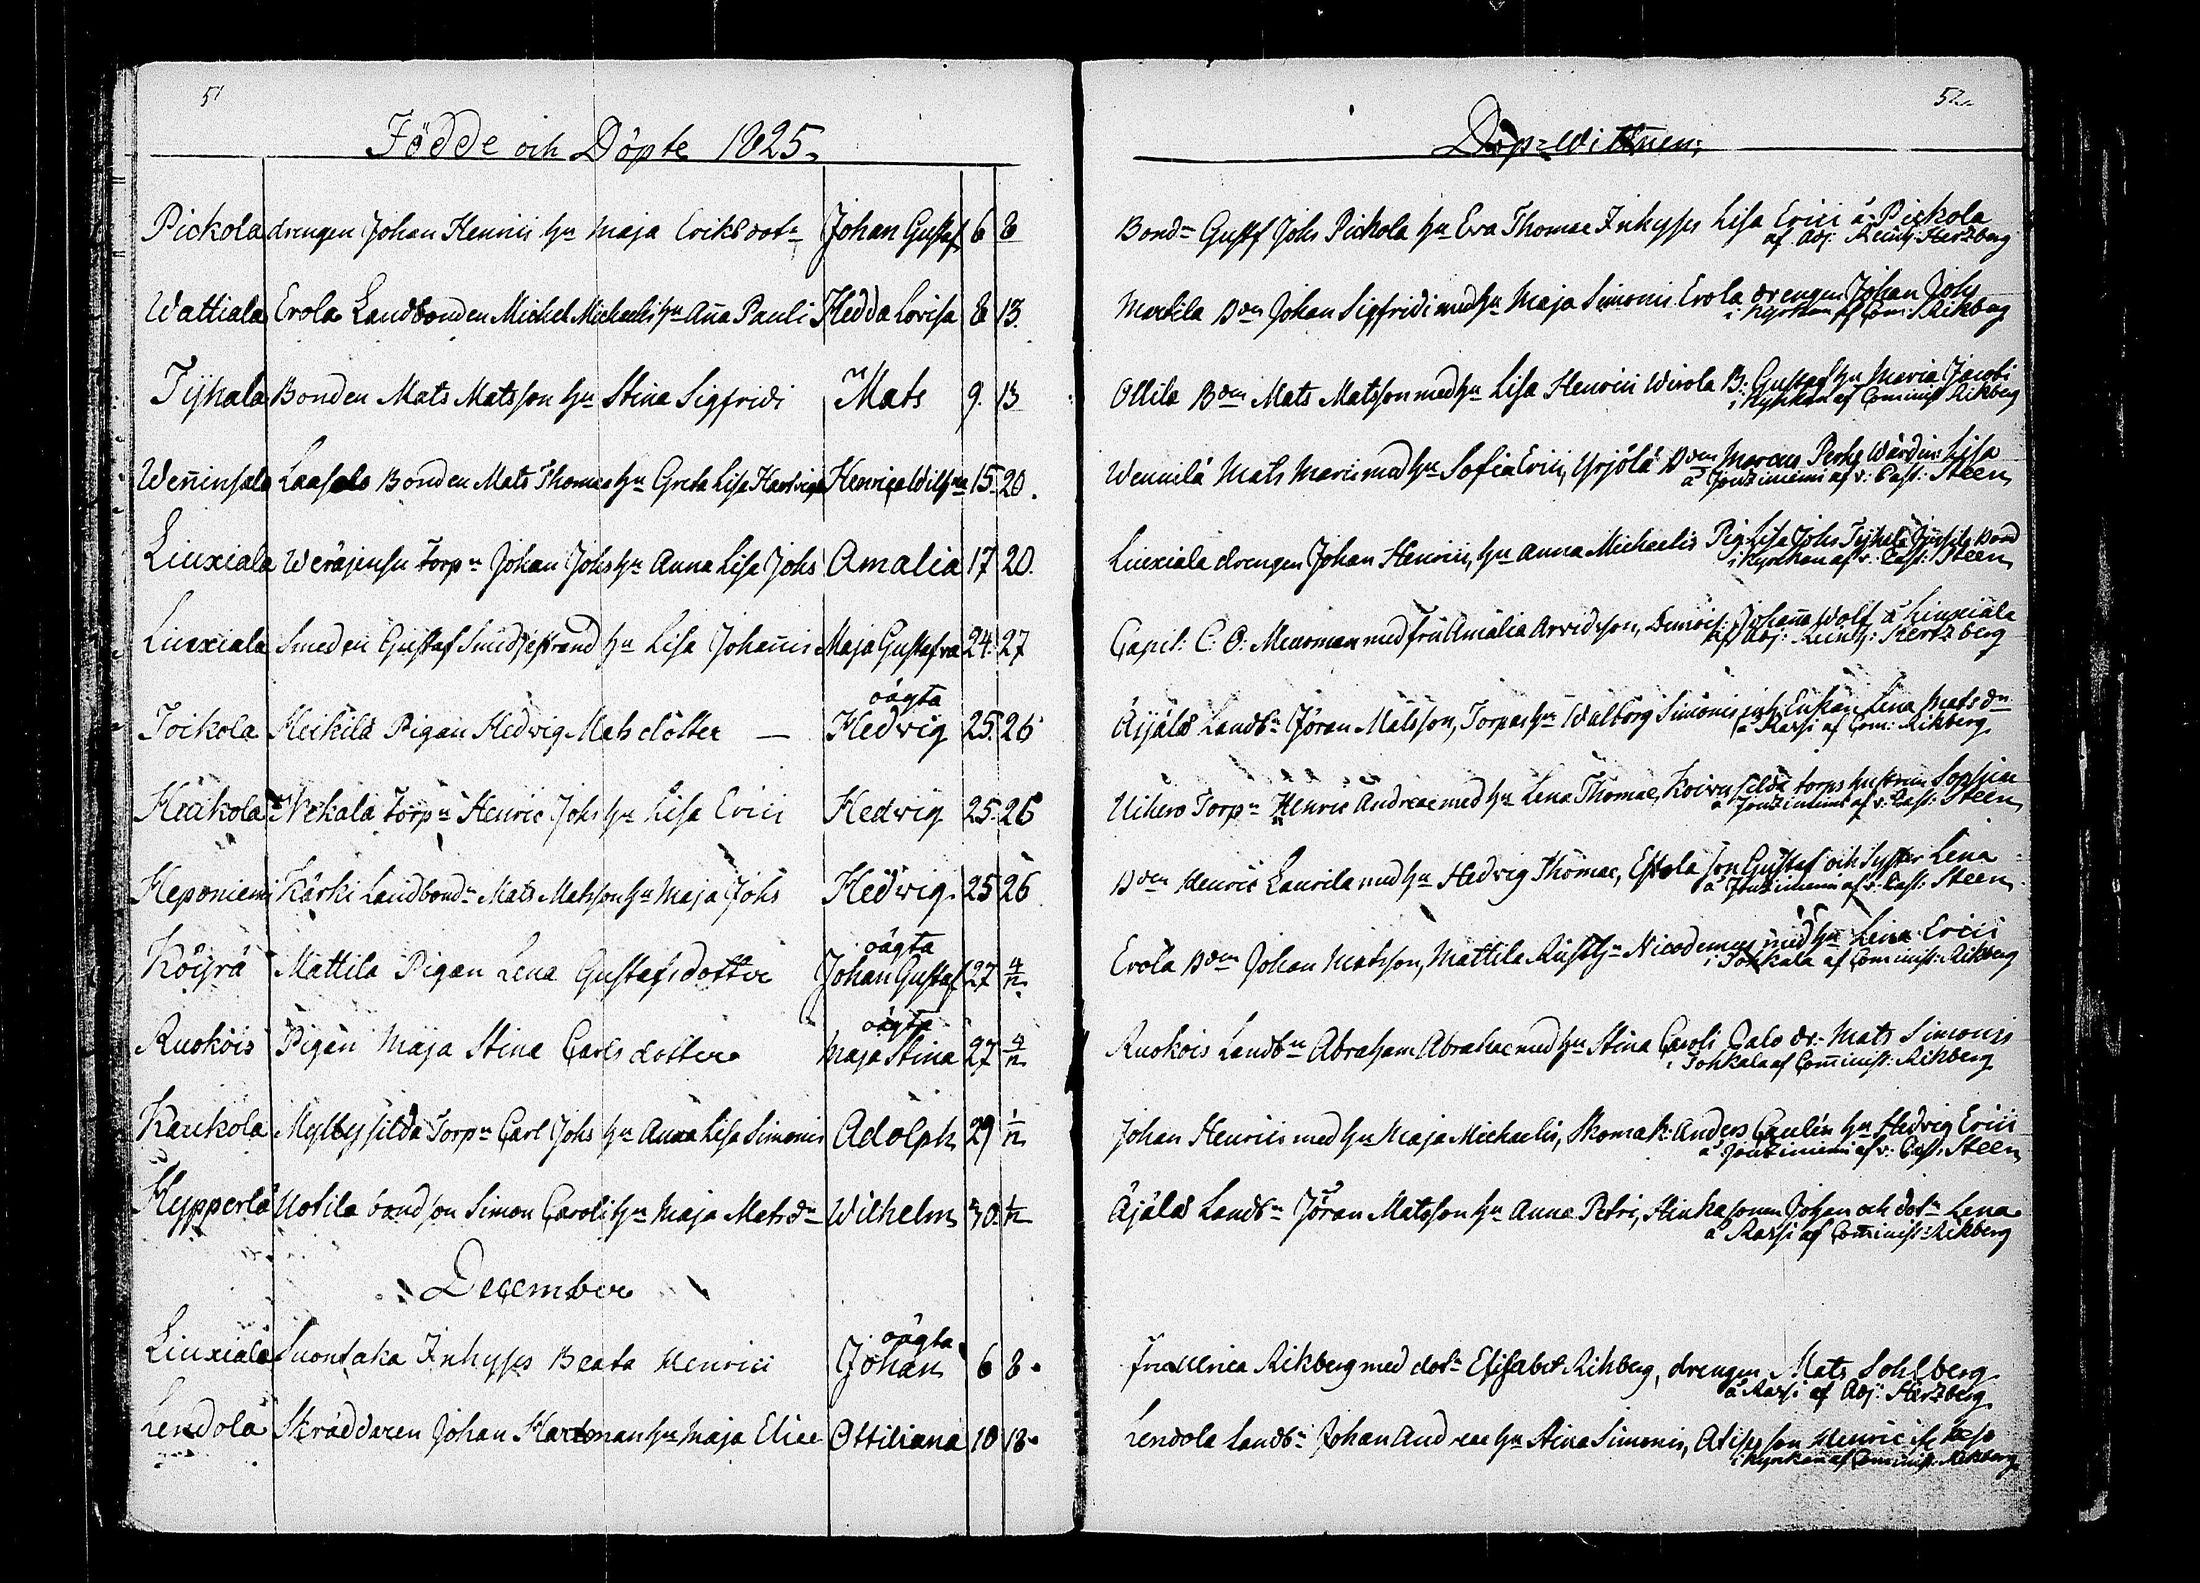 51
Födde och Döpte 1825.
Pickola drengen Johan Henrici hu Maja Eriksdotr Johan Gustaf 6 8
Wattiala Erola Landbonden Michel Michaelis hu Aña Pauli Hedda Lovisa 8 13.
Tyhala Bonden Mats Matsson hu Stina Sigfridi Mats 9. 13
Weñinsala Laasola Bonden Mats Thomae hu Greta Lisa Hartvigs Henrica 15 20.
Liuxiala Torpn Johan Johs hu Anna Lisa Johs Amalia 17 20.
Liuxiala Smeden Gustaf hu Lisa Johañis Maja Gustafva 24. 27
oägta
Toikola Heikilä Pigan Hedvig Mats dotter — Hedvig 25. 26
Heickola Nekala Torpn Henric Johs hu Lisa Erici Hedvig 25. 26
Heponiemi Kärki Landbondn Mats Matsson hu Maja Johs Hedvig. 25 26
oägta
Köyrä Mattila Pigan Lena Gustafsdotter Johan Gustaf 27 4/12
oägta
Ruokois Pigan Maja Stina Carls dotter Maja Stina 27 4/12
Kaukola Torpn Carl Johs hu Anna Lisa Simonis Adolph 29 1/12
Hypperlä Uotila bondson Simon Caroli hu Maja Matsdr Wilhelm 30. 1/12
December
oägta
Liuxiala Suontaka Inhyses Beata Henrici Johan 6 8.
Lendola Skräddaren Johan Hartman hu Maja Eliae Ottiliana 10 18.
52
Döp-Wittnen:
Bondn Gustf Johs Pickola hu Eva Thomae Inhyses Lisa Erici å Pickola
af Adj: Reinh: Hertzberg
Markila Bdn Johan Sigfridi med hu Maja Simonis Erola drengen Johan Johs
i Kyrkan af Com: Rikberg
Ollila Bdn Mats Matsson med hu Lisa Henrici Wirola B: Gustaf hu Maria Jacobi
i Kyrkan af Comminist Rikberg
Wennilä Mats med hu Sofia Erici, Yrjölä Bdn Marcus Lisa
å Jouzimiemi af v: Past: Steen
Liuxiala drengen Johan Henrici, hu Anna Michaelis Pig. Lisa Johs Bond
i Kyrkan af v: Past: Steen
Capit: C: O: Meurman med fru Amalia Arvidsson, Demois: Johana Wolf å Liuxiala
af Adj: Reinh: Hertzberg
Äijälä Landbn Jöran Matsson, Torpas hu Walborg Simonis Lena Matsdr
å Rassi af Com: Rikberg
Uihero Torpn Henric Andreae med hu Lena Thomae, torps hustrun Sophia
å Jouzimiemi af v: Past: Steen
Bdn Henric Laurila med hu Hedvig Thomae, Eskola son Gustaf och Syster Lena
å Jouzimiemi af v: Past: Steen
Erola Bdn Johan Matsson, Mattila Rusth. Nicodemus med hu Lena Erici
i Tohkala af Comminist: Rikberg
Ruokois Landbn Abraham Abrahae med hu Stina Caroli dr. Mats Simonis
i Tohkala af Comminist: Rikberg
Johan Henrici med hu Maja Michaelis, Skomak: Anders hu Hedvig Erici
å Jouzimiemi af v: Past: Steen
Äjälä Landbn Jöran Matsson hu Anna Petri, sonen Johan och dotr Lena
å Rassi af Comminist: Rikberg
fru Ulrica Rikberg med dotr Elisabet Rikberg, drengen Mats Sohlberg
å Rassi af Adj: Hertzberg
Lendola Landbn Johan Andreae hu Stina Simonis, son Henric
i Kyrkan af Comminist: Rikberg